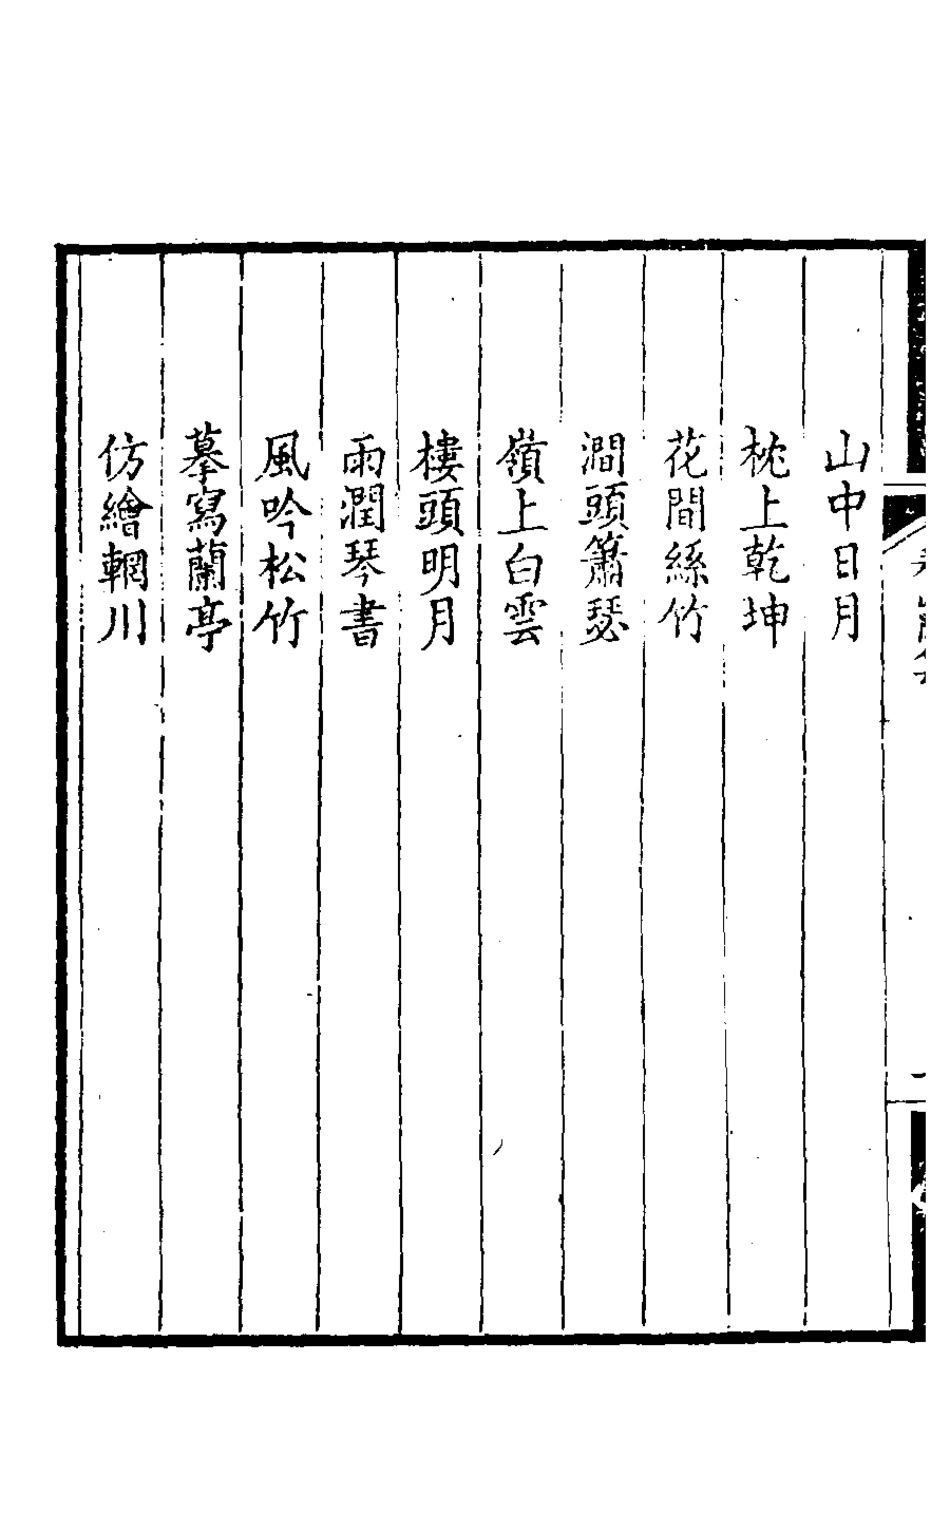 山中日月
枕上乾坤
花間絲竹
澗頭簫瑟
嶺上白雲
樓頭明月
雨潤琴書
風吟松竹
摹寫蘭亭
仿繪輞川